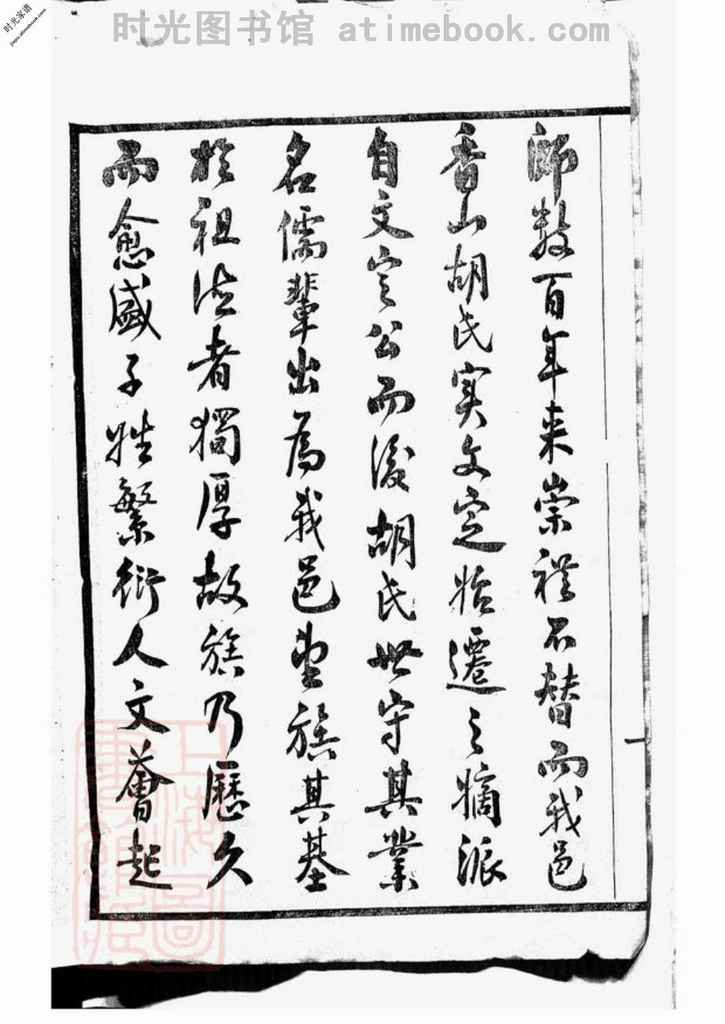 时光图书馆 atimebook.com
时光家谱
師数百年来崇祀不替而我邑
香山胡氏实文定始遷之嫡派
自文定公而後胡氏世守其業
名儒輩出為我邑望族其基
於祖德者獨厚故族乃歷久
而愈盛子姓繁衍人文薈起
上海圖